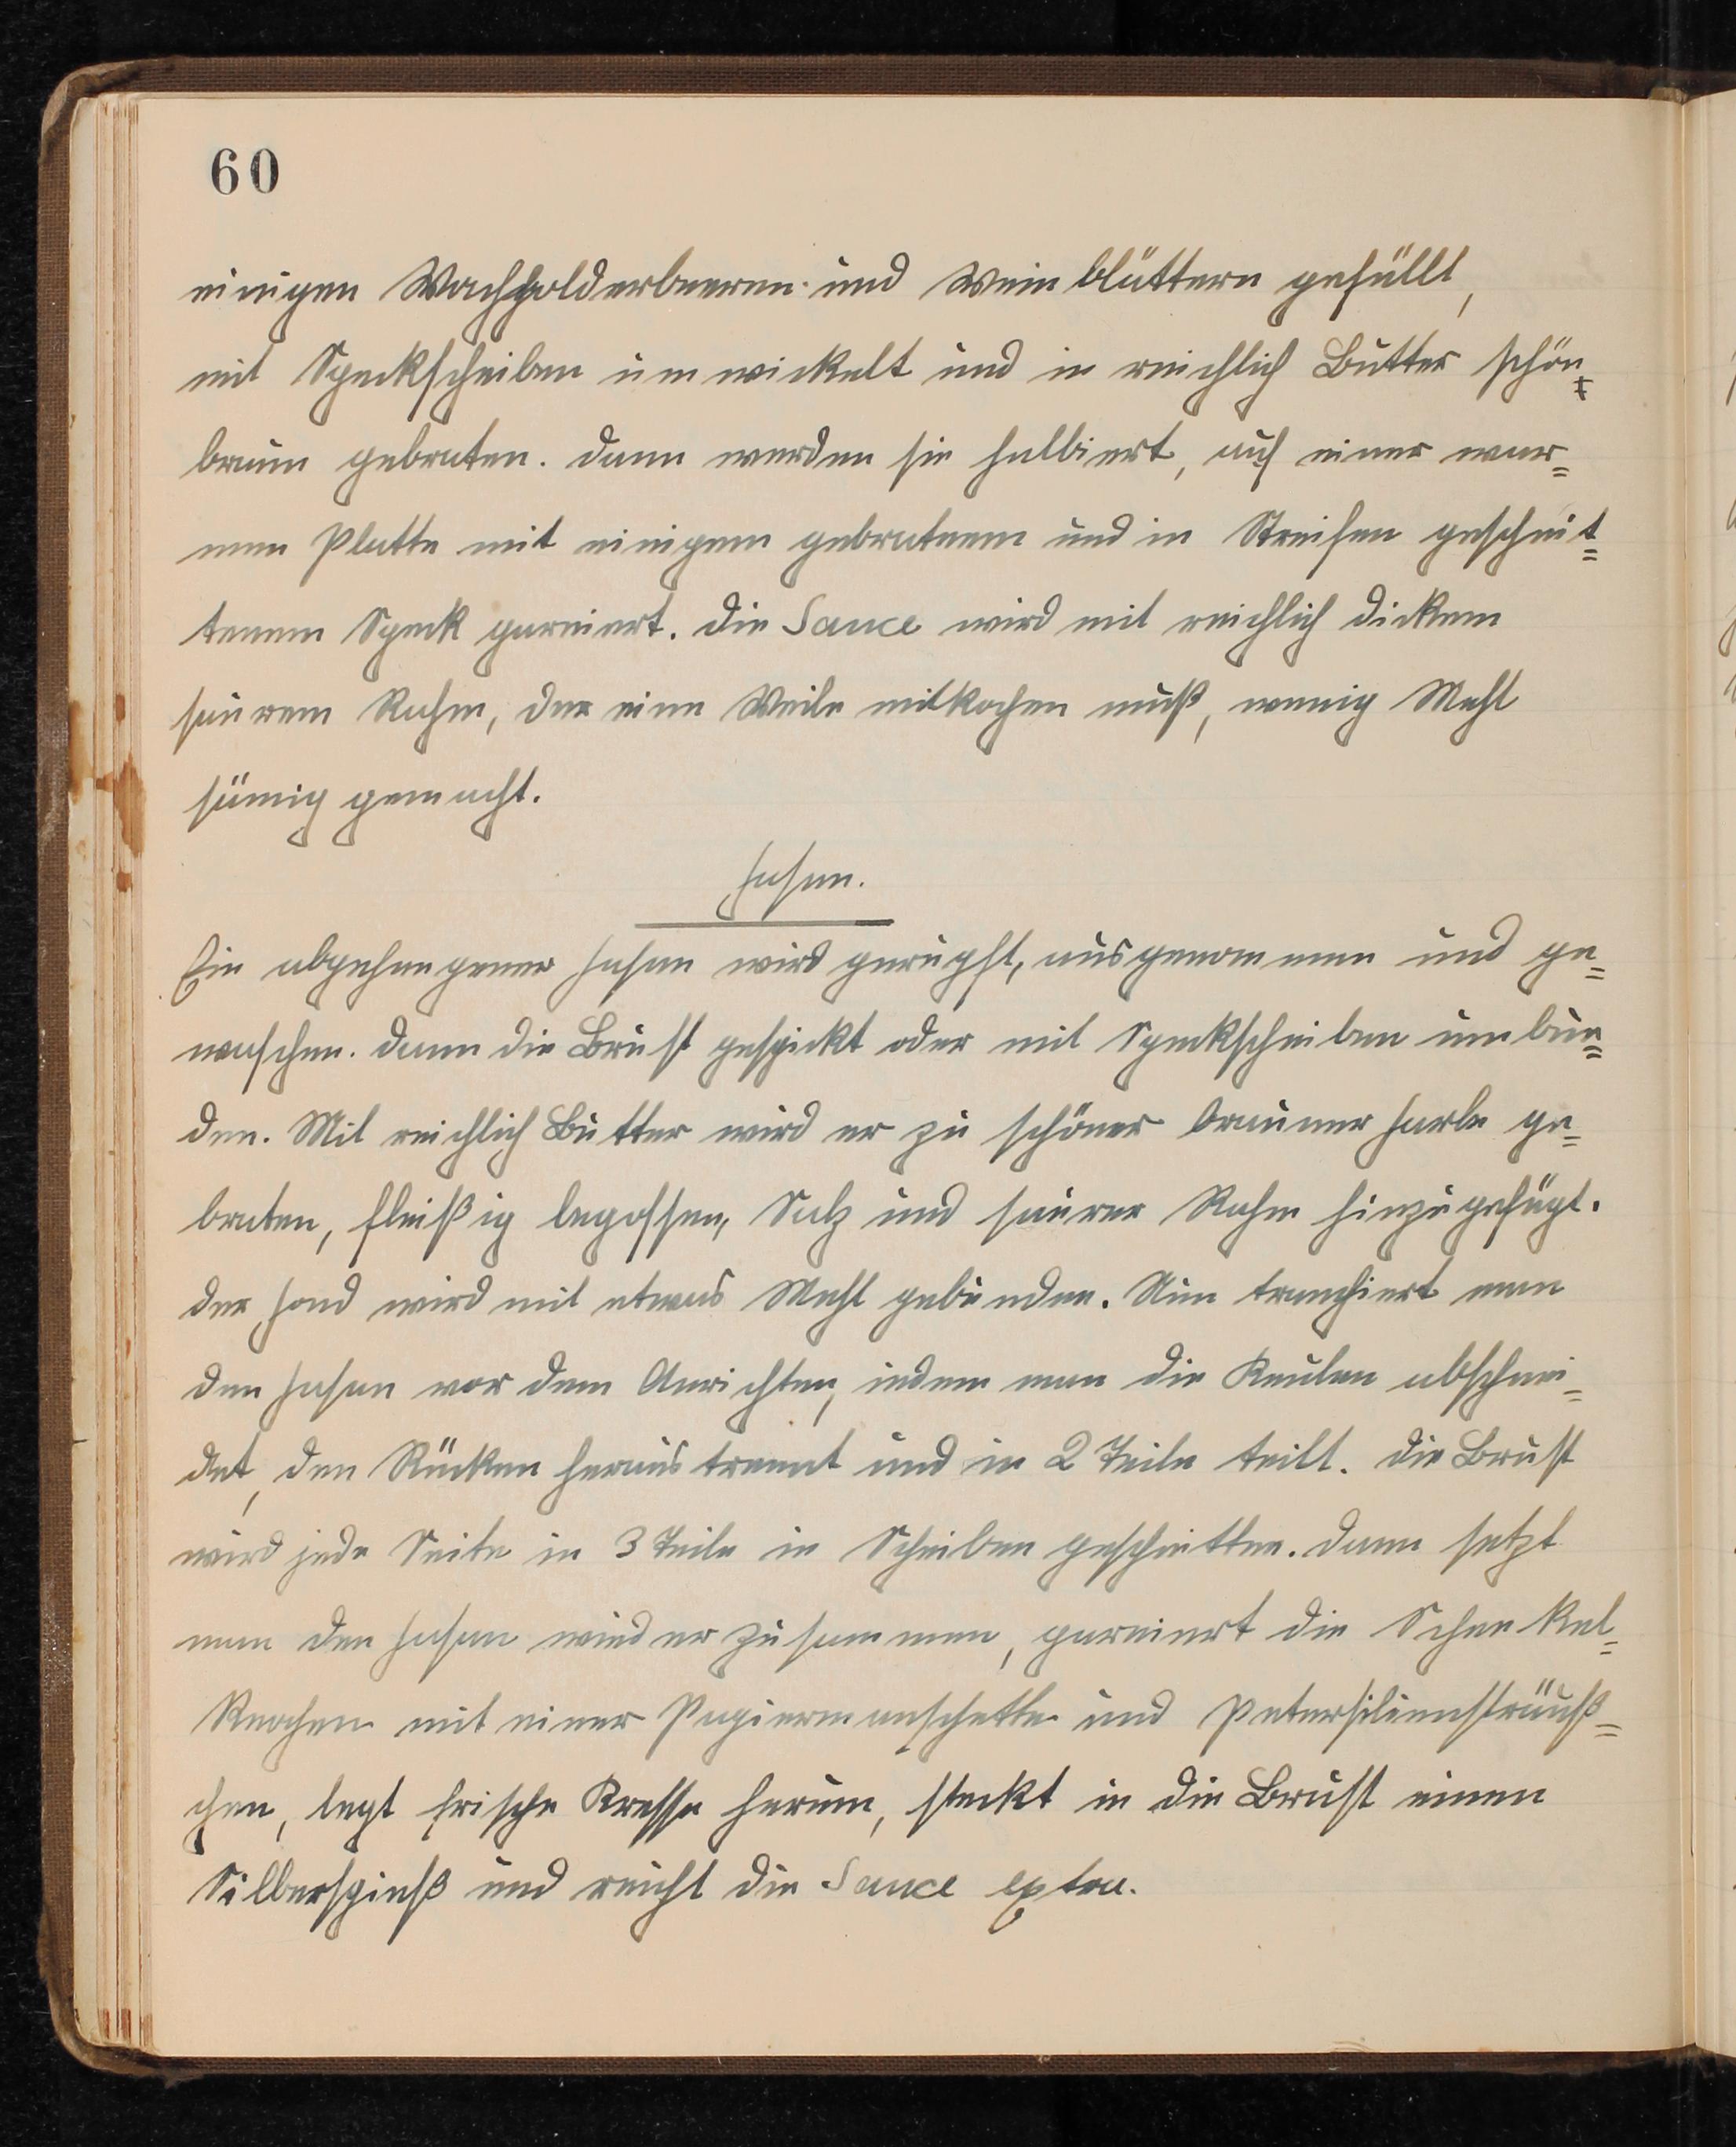 60
einigen Wachholderbeeren und Weinblättern gefüllt,
mit Speckscheiben umwickelt und in reichlich Butter schön=
braun gebraten. Dann werden sie halbiert, auf einer war=
men Platte mit einigem gebratenem und in Streifen geschnit=
tenem Speck garniert. Die Sauce wird mit reichlich dickem
saurem Rahm, der eine Weile mitkochen muß, wenig Mehl
sämig gemacht.
Fasan.
Ein abgehangener Fasan wird gerupft, ausgenommen und ge=
waschen. Dann die Brust gespickt oder mit Speckscheiben umbun=
den. Mit reichlich Butter wird er zu schöner brauner Farbe ge=
braten, fleißig begossen, Salz und saurer Rahm hinzugefügt.
Der Fond wird mit etwas Mehl gebunden. Nun tranchiert man
den Fasan vor dem Anrichten, indem man die Keulen abschnei=
det, den Rücken heraustrennt und in 2 Teile teilt. Die Brust
wird jede Seite in 3 Teile in Scheiben geschnitten. Dann setzt
man den Fasan wieder zusammen, garniert die Schenkel=
Knochen mit einer Papiermanschette und Petersiliensträuß=
chen, legt frische Kresse herum, steckt in die Brust einen
Silberspieß und reicht die Sauce extra.